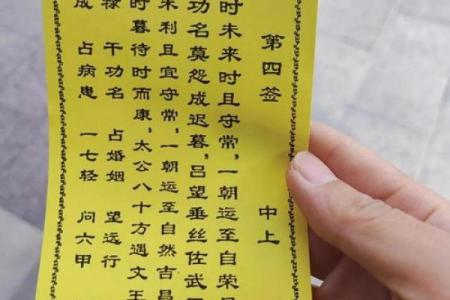 第四签 中上
时未来时且守常，一朝运至自荣
功名莫怨成迟暮，吕望垂丝佐武
未利且宜守常，一朝运至自然吉昌
时暮待时而康，太公八十方遇文王
禄 干功名 占婚姻 望远行
成 占病患 一七轻 问六甲